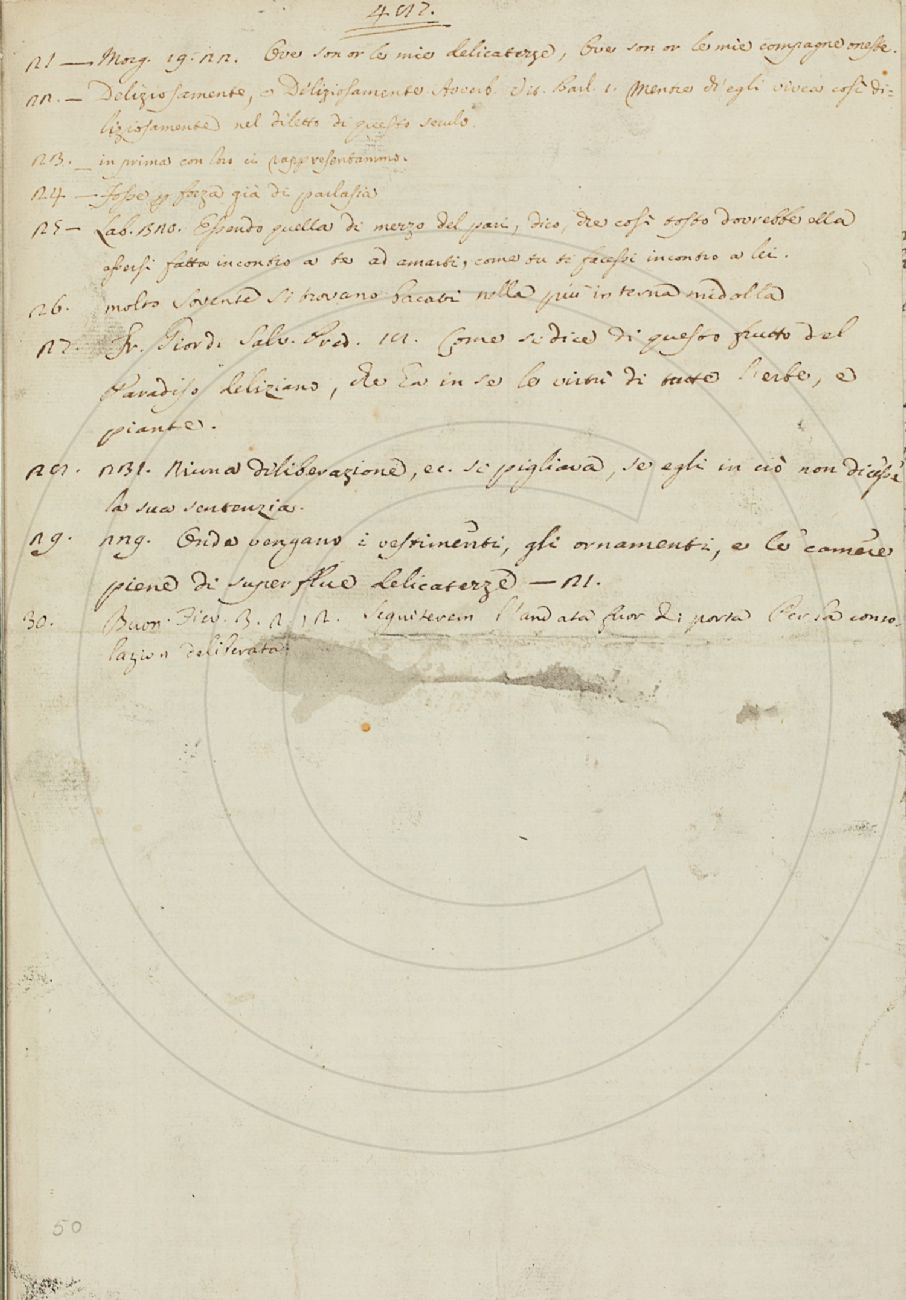 427.
21 — Morg. 19. 22. Ove son or le mie delicatezze, Ove son or le mie compagne oneste.
22. — Deliziosamente, e Diliziosamente Avverb. Vit. Barl. 1. Mentre ch'egli vivea così di=
liziosamente nel diletto di questo secolo.
23. — in prima con loro ci rappresentammo.
24 — Fosse p forza già di parlasia
25 — Lab. 320. Essendo quella di mezzo del pari, dico, che così tosto dovrebbe ella
essersi fatta incontro a te ad amarti, come tu ti facessi incontro a lei.
26. molto sovente si trovano bacati nella più interna midolla
27. Fr. Giord. Salv. Pred. Come si dice di questo frutto del
Paradiso deliziano, che ha in se le virtù di tutte l'erbe, e
piante.
28. 231. Niuna diliberazione, ec. si pigliava, se egli in ciò non dicesse
la sua sentenzia.
29. 229. Onde vengano i vestimenti, gli ornamenti, e le camere
piene di superflue delicatezze — 21.
30. Buon. Fier. 3. 2. 12. Seguiterem l'andata fuor di porta Per la conso-
lazion deliberata
50